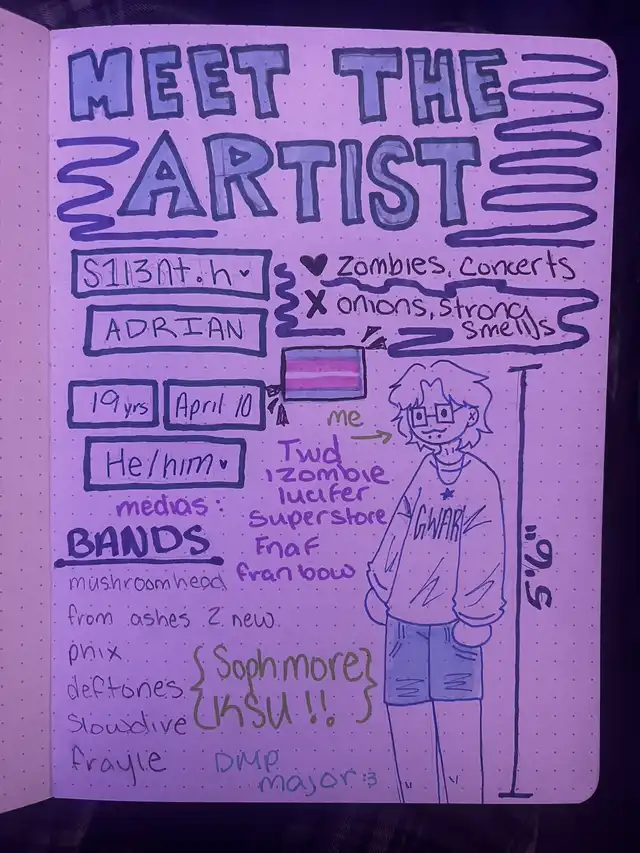 MEET THE
ARTIST
S1l3Nt.h
ADRIAN
♥ zombies, concerts
X onions, strong
smells
19 yrs
April 10
He/him
me
medias:
Twd
izombie
lucifer
superstore
Fnaf
fran bow
BANDS
mushroomhead
from ashes 2 new
phix
deftones
slowdive
frayle
{Sophmore
KSU!!}
DMP
major :3
GWAR
5'6"